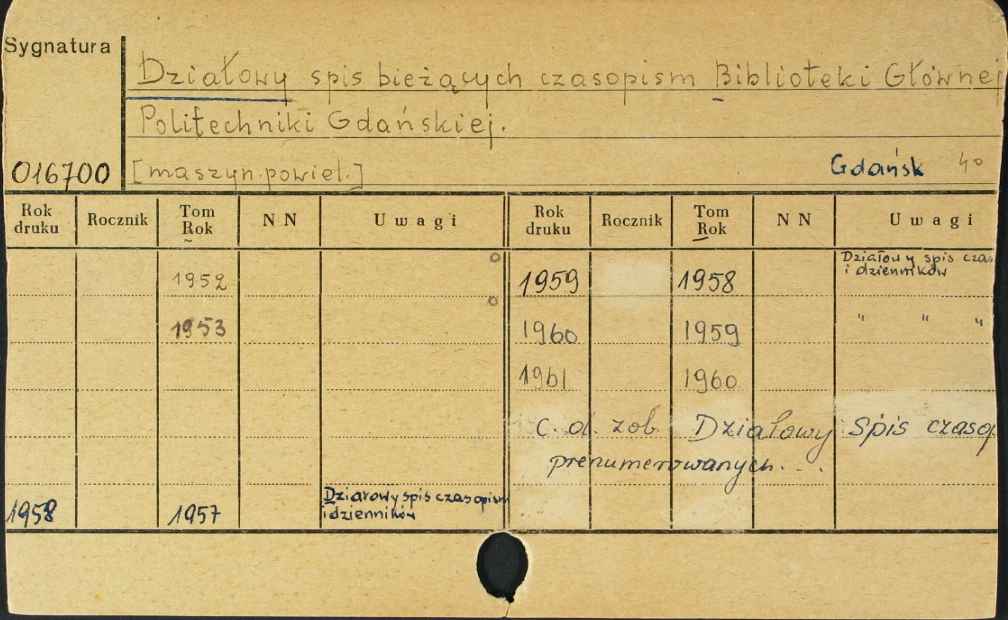 Sygnatura
Działowy spis bieżących czasopism Biblioteki Głównej
Politechniki Gdańskiej.
016700 [maszyn.powiel.] Gdańsk 40
Rok druku Rocznik Tom Rok NN Uwagi Rok druku Rocznik Tom Rok NN Uwagi
1952 1959 1958 Działowy spis czas
i dzienników
1953 1960 1959 " " "
1961 1960
c. d. zob. Działowy spis czasop
prenumerowanych...
1958 1957 Działowy spis czasopism
i dzienników